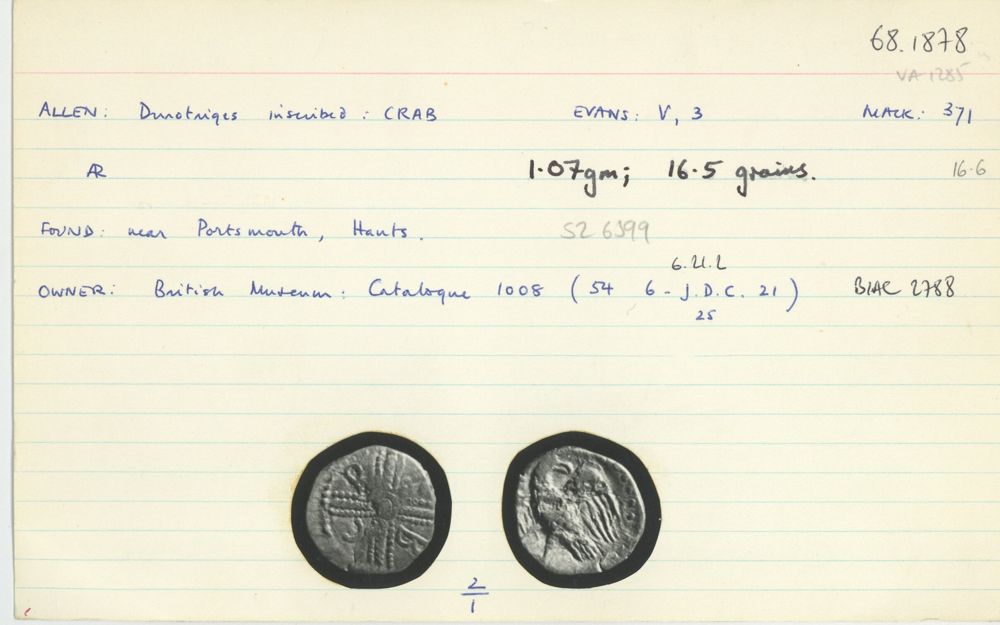 68.1878
VA 1285
ALLEN: Durotriges inscribed: CRAB EVANS: V, 3 MACK: 371
AR 1.07gm; 16.5 grains. 16.6
FOUND: near Portsmouth, Hants. SZ 6599
OWNER: British Museum: Catalogue 1008 (54 6- J.D.C. 21) BMC 2788
25
2
1